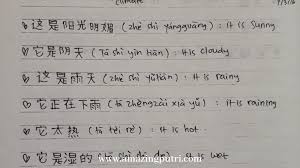 climate
这是阳光明媚 (zhè shì yángguāng) : it is sunny
它是阴天 (Tā shì yīn tiān) : it is cloudy
这是雨天 (zhè shì yǔtiān) : it is rainy
它正在下雨 (tā zhèngzài xià yǔ) : it is rainy
它太热 (tā tài rè) : it is hot
它是湿的 : it is wet
www.amazingputri.com